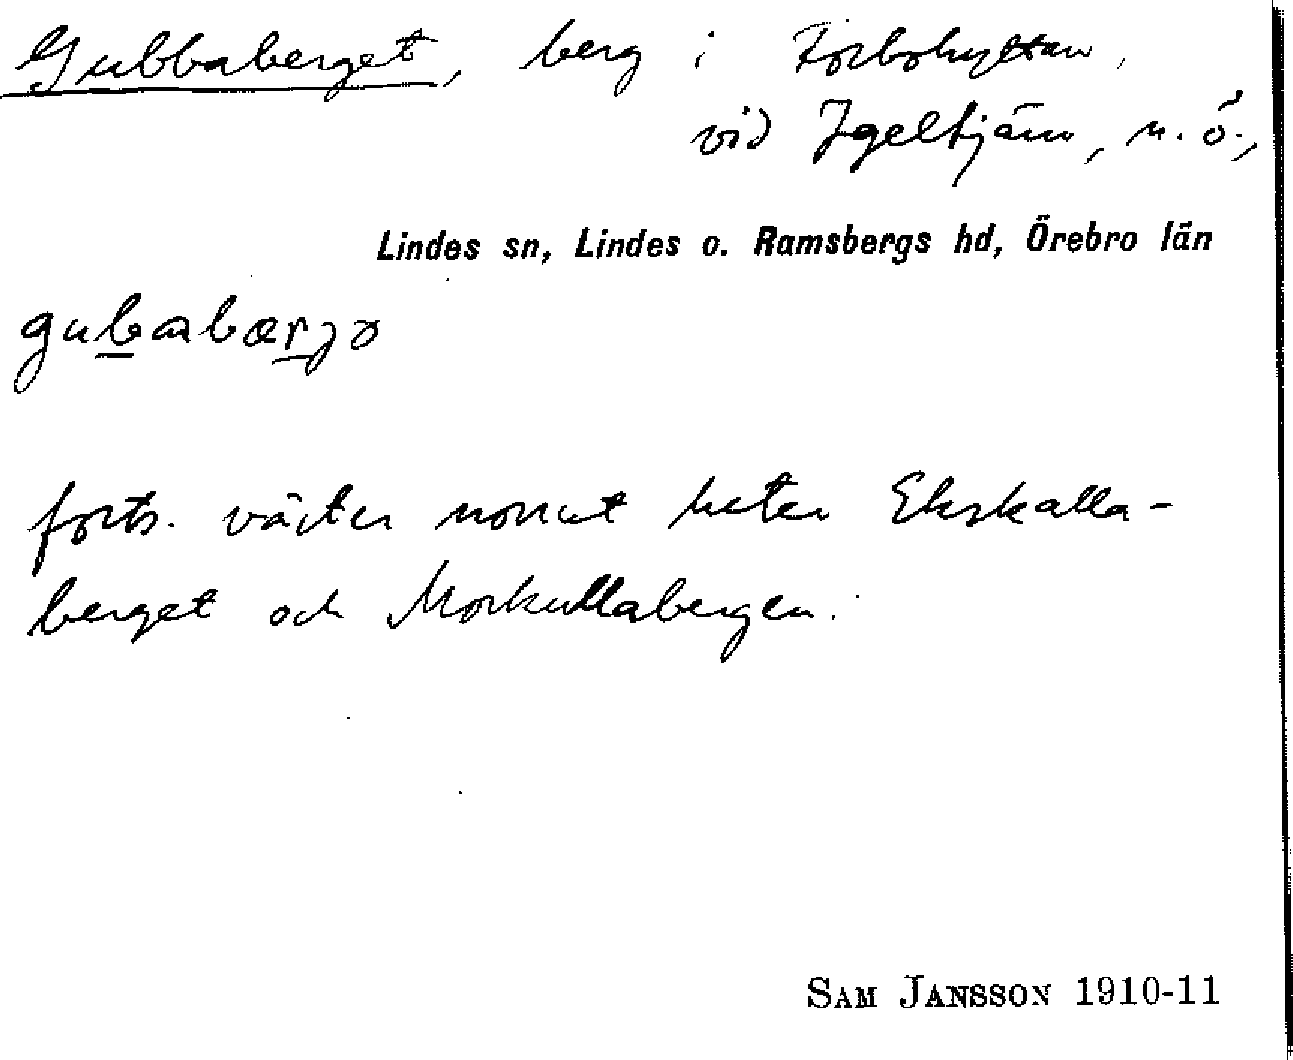 Gubbaberget, berg i Torbohyttan,
vid Igeltjärn, n. ö.,
Lindes sn, Lindes o. Ramsbergs hd, Örebro län
gubabærjə
forts. väster norrut heter Ekskalla-
berget och Morkullabergen.
SAM JANSSON 1910-11